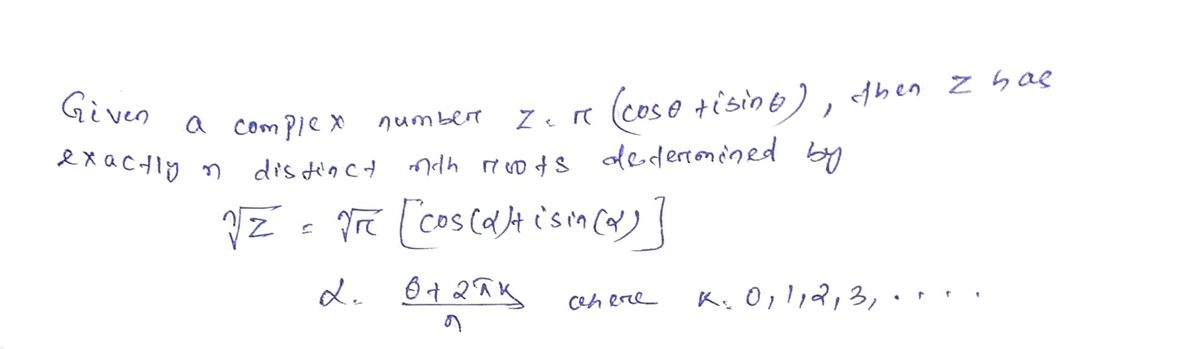 Given a complex number z = r (cosθ + isinθ), then z has
exactly n distinct nth roots determined by
ⁿ√z = ⁿ√r [cos(α) + isin(α)]
α = (θ + 2πk)/n where k = 0, 1, 2, 3, .....